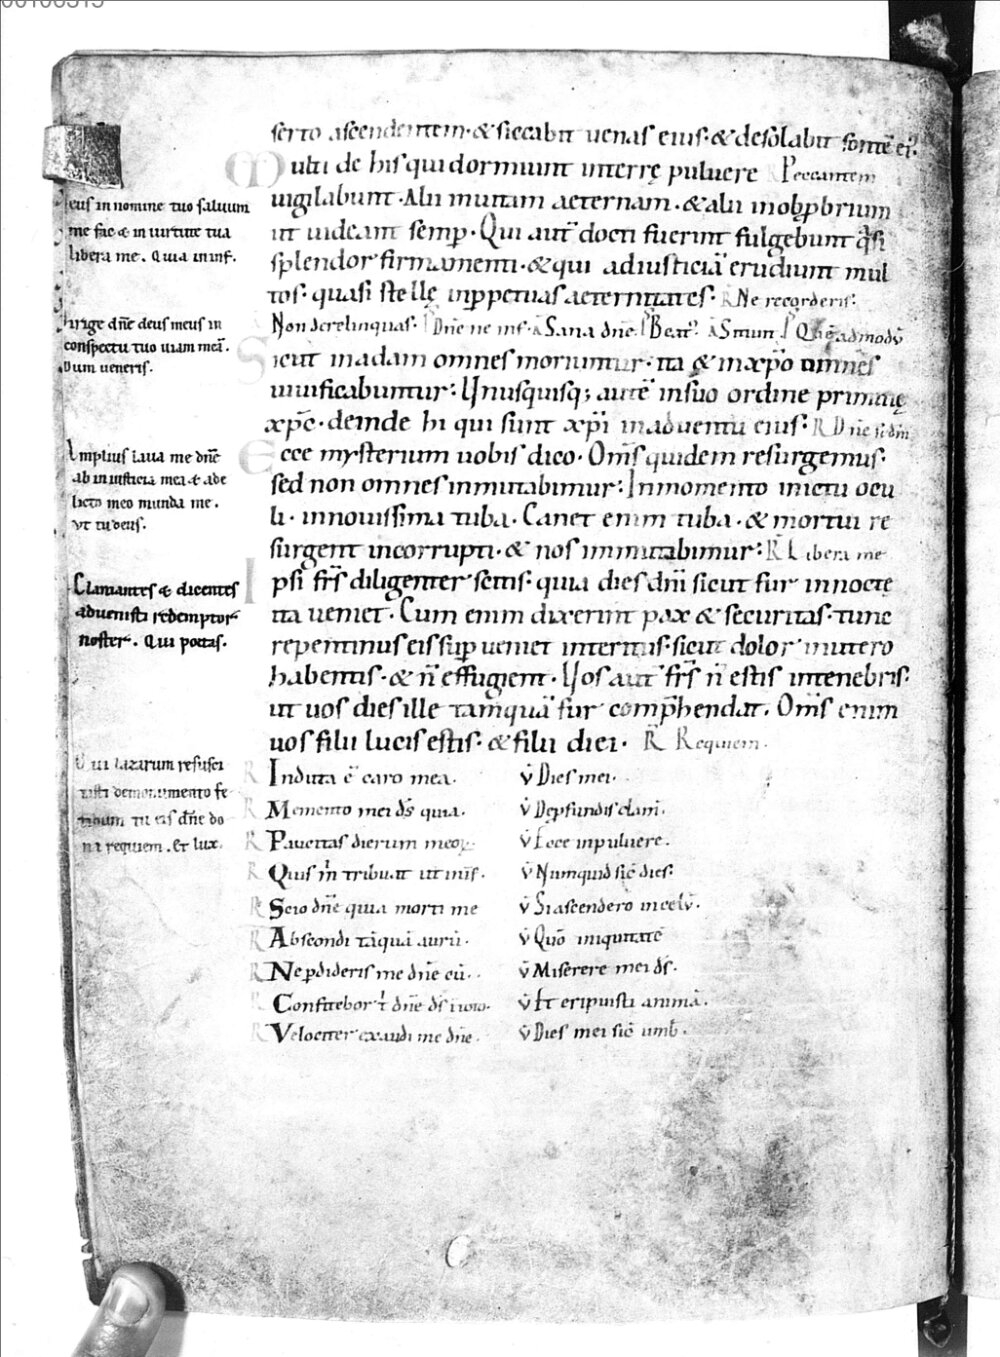 serto ascendentem·& siccabit uenas eius·& desolabit fontē ei᷒.
Multi de his qui dormiunt interrę puluere Peccantem
uigilabunt·Alii inuitam aeternam·&alii inobꝓbrium
ut uideant semꝑ·Qui aut̄ docti fuerint fulgebunt q̄si
splendor firmamenti·&qui adiusticiā erudiunt mul
tos·quasi stellę inꝑpetuas aeternitates· R Ne recorderis:
Non derelinquas· P Dn̄e ne inf· A Sana dn̄e P Beat᷒ A Sitiuit P Quēadmodū
Sicut inadam omnes moriuntur·ita & inxp̄o omnes
uiuificabuntur: Unusquisq; autē insuo ordine primitię
xpc̄·deinde hi qui sunt xp̄i inaduentu eius: R Dn̄e sc̄dm̄
Ecce mysterium uobis dico·Om̄s quidem resurgemus·
sed non omnes inmutabimur: Inmomento inictu ocu
li·innouissima tuba·Canet enim tuba·& mortui re
surgent incorrupti·& nos immutabimur: R Libera me
Ipsi frs̄ diligenter scitis·quia dies dn̄i sicut fur innocte
ita ueniet·Cum enim dixerint pax & securitas·tunc
repentinus eis suꝑueniet interitus·sicut dolor inutero
habentis·& n̄ effugient·Uos aut̄ frs̄ n̄ estis intenebris·
ut uos dies ille tamquā fur comp̄hendat. Om̄s enim
uos filii lucis estis·&filii diei· R Requiem.
R Induta ē caro mea. v̄ Dies mei·
R Memento mei ds̄ quia. v̄ Deꝓfundis clam̄.
R Paucitas dierum meoꝝ v̄ Ecce inpuluere.
R Quis m̄ tribuat ut inīs. v̄ Numquid sic̄ dies:
R Scio dn̄e quia morti me v̄ Si ascendero incelū.
R Abscondi tāquā aurū. v̄ Quō iniquitatē
R Neꝑdideris me dn̄e cū. v̄ Miserere mei ds̄.
R Confitebor t̄ dn̄e ds̄ v̄ Et eripuisti animā.
R Velociter exaudi me dn̄e. v̄ Dies mei sic̄ umb̄.
Deus in nomine tuo saluum
me fac & in uirtute tua
libera me. Quia in inf.
Dirige dn̄e deus meus in
conspectu tuo uiam meā.
Dum ueneris.
Amplius laua me dn̄e
ab iniusticia mea & ade
licto meo munda me.
Vt tu deus.
Clamantes & dicentes
aduenisti redemptor
noster. Qui portas.
Qui lazarum resusci
tasti demonumento fe
tidum tu eis dn̄e do
na requiem. Et lux.